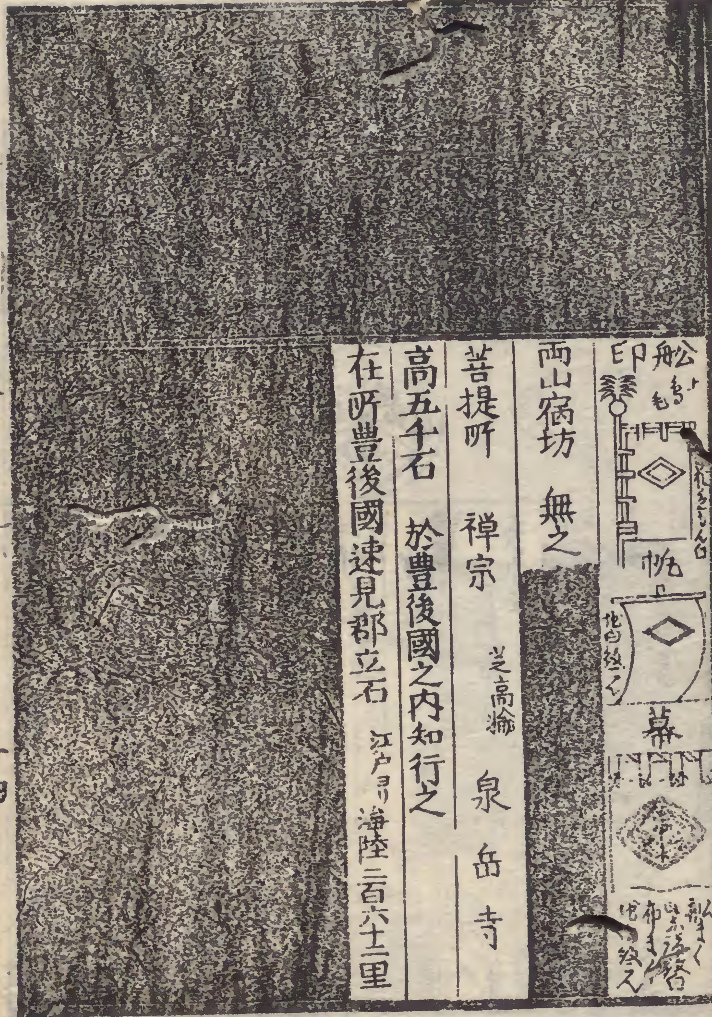 舩印
帆
幕
両山宿坊　無之
菩提所　禅宗　芝高輪　泉岳寺
高五千石　於豊後國之内知行之
在所豊後國速見郡立石　江戸ヨリ海陸二百六十二里